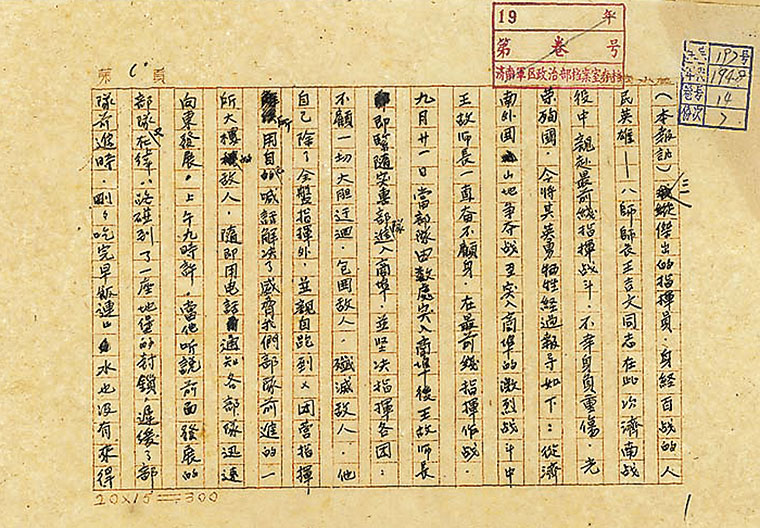 19 年
第 卷 号
济南军区政治部档案室
197号
1948
14
份次 7
第 頁
(本報訊)三縱傑出的指揮員,身經百战的人
民英雄——八師師長王吉文同志在此次濟南战
役中親赴最前綫指揮战斗,不幸身負重傷,光
荣殉國,今将其英勇犧牲經過報导如下:從濟
南外围山地争夺战至突入商埠的激烈战斗中
王故师長一直奋不顧身,在最前綫指揮作战.
九月廿一日當部隊由数處突入商埠後王故师長
即緊隨突擊部隊進入商埠,並坚决指揮各团:
不顧一切大胆迂迴,包围敌人,殲滅敌人.他
自己除了全盤指揮外,並親自跑到×团营指揮
所用自的喊話解决了威脅我們部隊前進的一
所大樓的敌人,隨即用电話通知各部隊迅速
向東發展,上午九時許,當他听說前面發展的
部隊又在緯八路碰到了一座地堡的封鎖,遲緩了部
隊前進時,刚々吃完早飯連水也没有來得
20×15=300
1